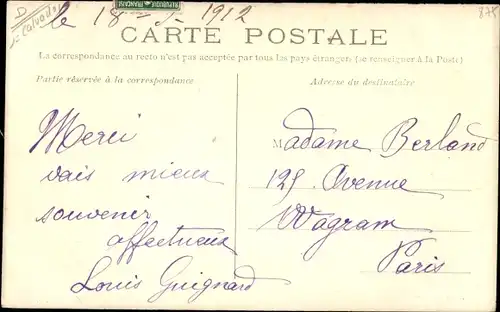 D
Calvados
le 18 - 5 - 1912
878
REPUBLIQUE FRANÇAISE
CARTE POSTALE
La correspondance au recto n'est pas acceptée par tous les pays étrangers (se renseigner à la Poste)
Partie réservée à la correspondance
Adresse du destinataire
Merci
vais mieux
souvenir
affectueux
Louis Guignard
Madame Berland
125 Avenue
Wagram
Paris